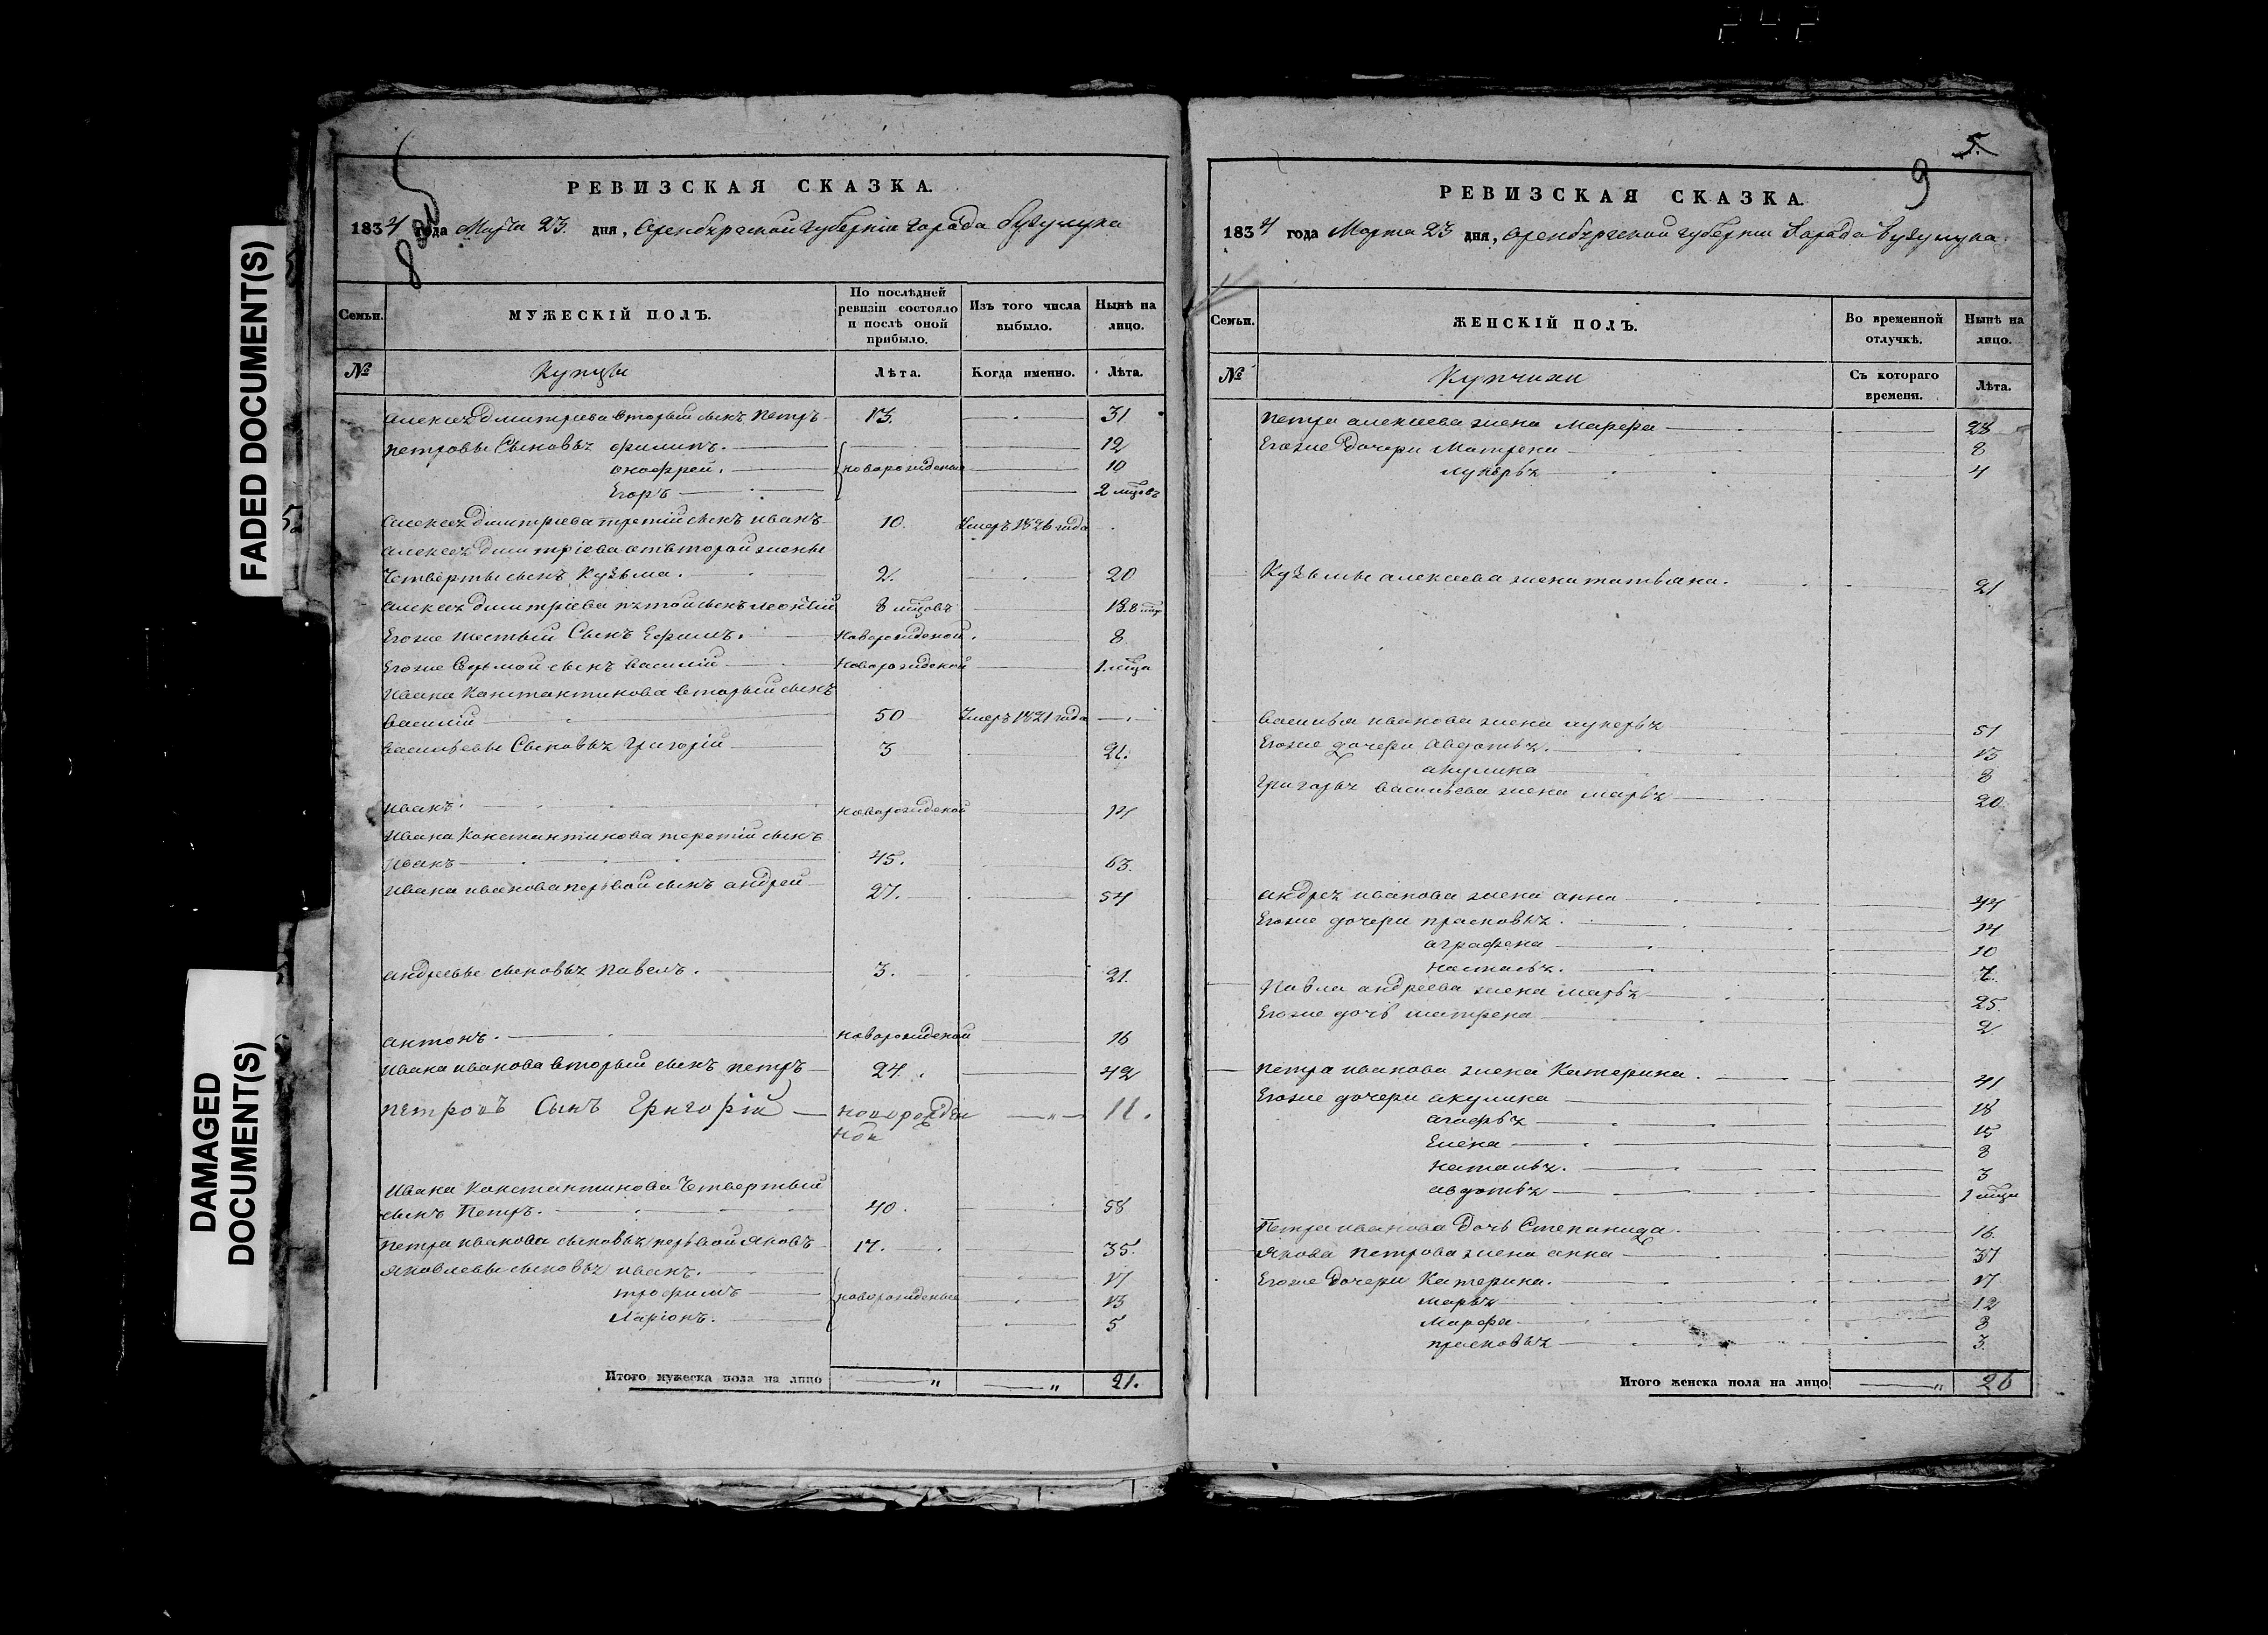 242
FADED DOCUMENT(S)
DAMAGED DOCUMENT(S)
РЕВИЗСКАЯ СКАЗКА.
1834 года Марта 23. дня, Оренбургской губернии города Бузулука
Семьи.
МУЖЕСКІЙ ПОЛЪ.
По послѣдней ревизіи состояло и послѣ оной прибыло.
Изъ того числа выбыло.
Нынѣ на лицо.
№
Купцы
Лѣта.
Когда именно.
Лѣта.
Алексея Дмитріева вторый сынъ Петръ 13. 31
Петровы сыновья Филипъ. 12
Онофрей. новорожденые 10
Егоръ 2 мцовъ
Алексея Дмитріева третій сынъ Иванъ 10. Умеръ 1826 года
Алексея Дмитріева отъ второй жены
Четверты сынъ Кузьма. 2. 20
Алексея Дмитріева пятой сынъ Леонтій 8 мцовъ 18. 8 мцо
Егоже шестый сынъ Ефимъ. Новорожденой. 8
Егоже седьмой сынъ Василій Новорожденой 1. мца
Ивана Константинова вторый сынъ
Василій 50 Умеръ 1821 года
Васильевы сыновья Григорій 3 21.
Иванъ. новорожденой 14
Ивана Константинова третій сынъ
Иванъ 45. 63.
Ивана Иванова первой сынъ Андрей 27. 54
Андреевы сыновья Павелъ. 3. 21.
Антонъ. новорожденой 16
Ивана Иванова вторый сынъ Петръ 24. 42
Петровъ Сынъ Григорій новорожден 11.
ной
Ивана Константинова Четвертый
сынъ Петръ. 40. 58
Петра Иванова сыновья первой Яковъ 17. 35.
Яковлевы сыновья Иванъ. 17
Трофимъ новорожденые 13
Ларіонъ. 5
Итого мужеска пола на лицо 21.
5.
9
РЕВИЗСКАЯ СКАЗКА.
1834 года Марта 23 дня, Оренбургской губерніи города Бузулука
Семьи.
ЖЕНСКІЙ ПОЛЪ.
Во временной отлучкѣ.
Нынѣ на лицо.
№
Купчихи
Съ котораго времени.
Лѣта.
Петра Алексеева жена Марфа 28
Егоже дочери Матрена 8
Лукерья 4
Кузьмы Алексеева жена Татьяна. 21
Василья Иванова жена Лукерья 51
Егоже дочери Авдотья. 15
Акулина 8
Григорья Васильева жена Марья 20
Андрея Иванова жена Анна 44
Егоже дочери Прасковья. 14
Аграфена 10
Настасья. 7.
Павла Андреева жена Марья 25.
Егоже дочь Матрена 2
Петра Иванова жена Катерина. 41
Егоже дочери Акулина 18
Агафья 15
Елена 8
Наталья. 3
Авдотья 1 мца
Петра Иванова Дочь Степанида 16.
Якова Петрова жена Анна 37
Егоже дочери Катерина. 17
Марья 12
Марфа 8
Прасковья 3.
Итого женска пола на лицо 26